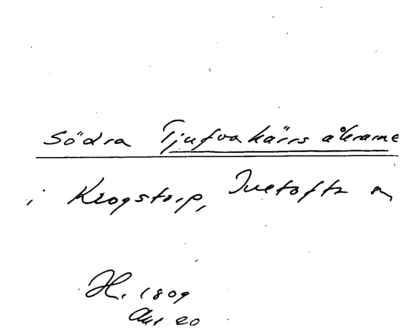 Södra Tjufvakärrs åkrarne
i Krogstorp, Ivetofta
H. 1809
20